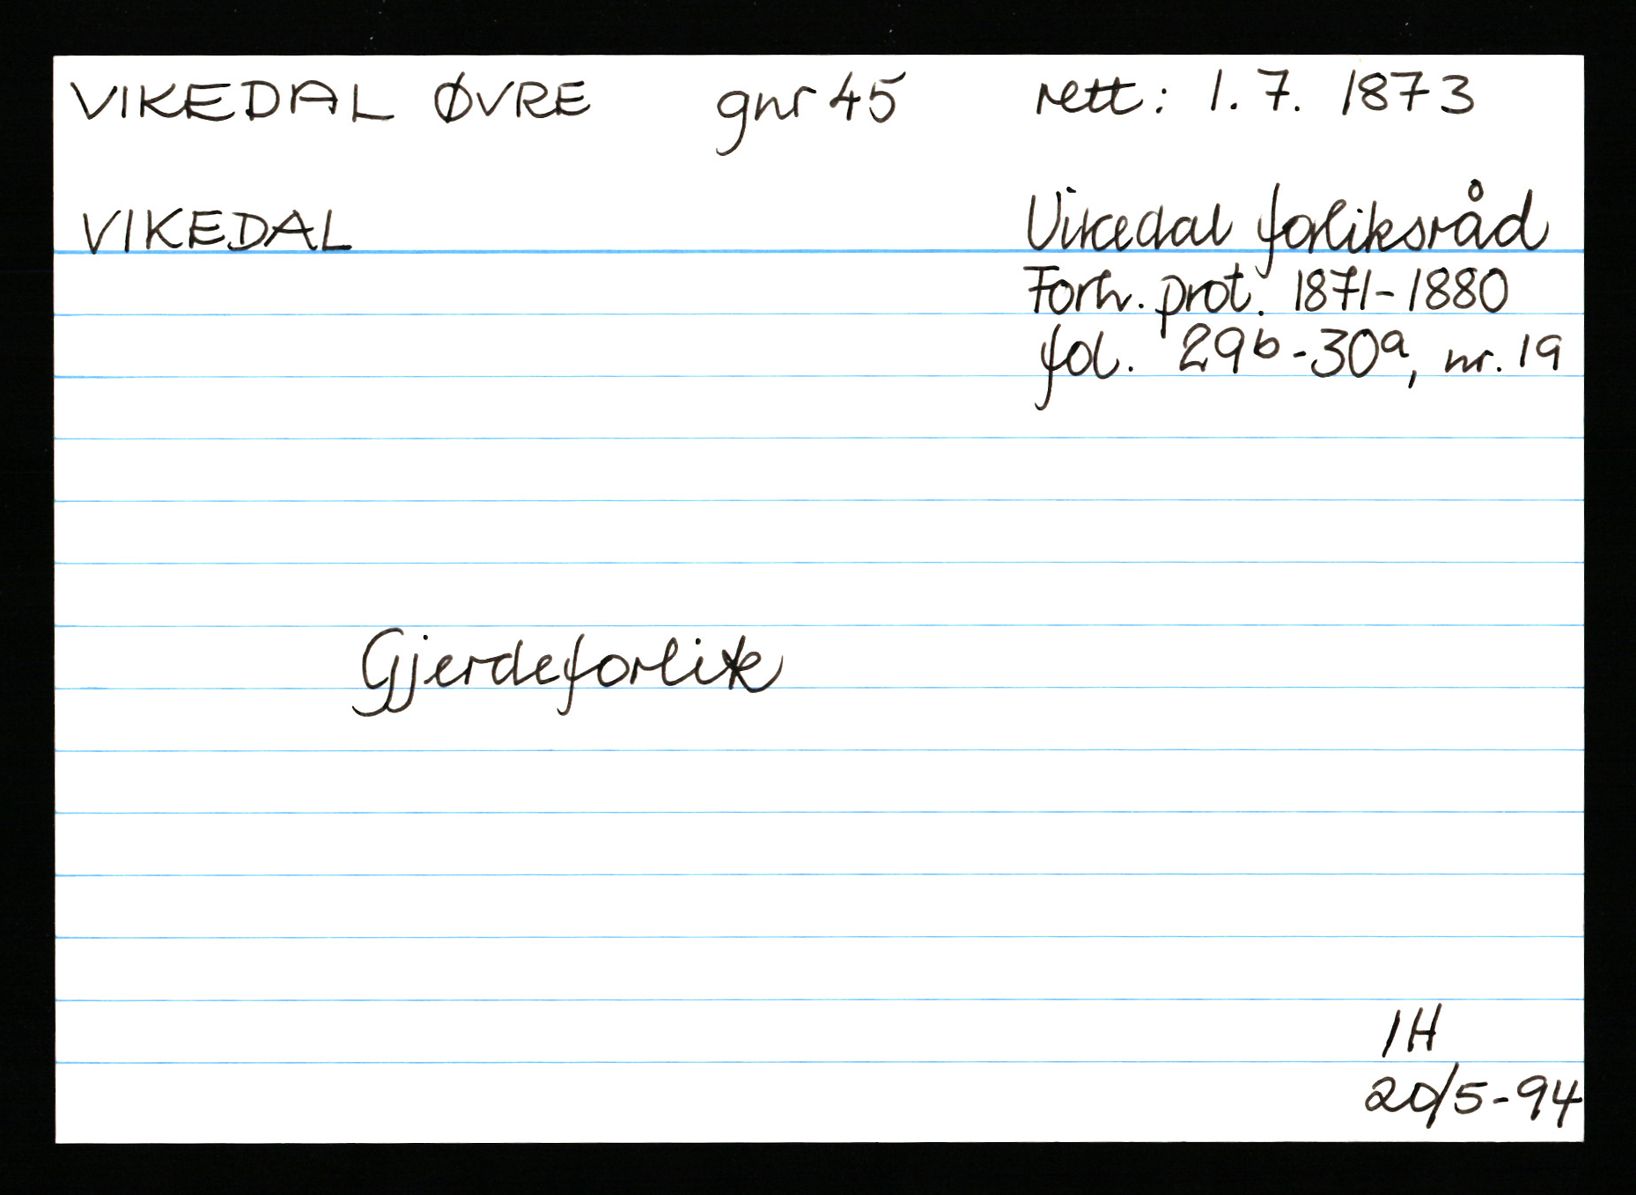 VIKEDAL ØVRE gnr 45 rett: 1. 7. 1873
VIKEDAL Vikedal forliksråd
Forh. prot. 1871-1880
fol. 29b-30a, nr. 19
Gjerdeforlik
IH
20/5-94